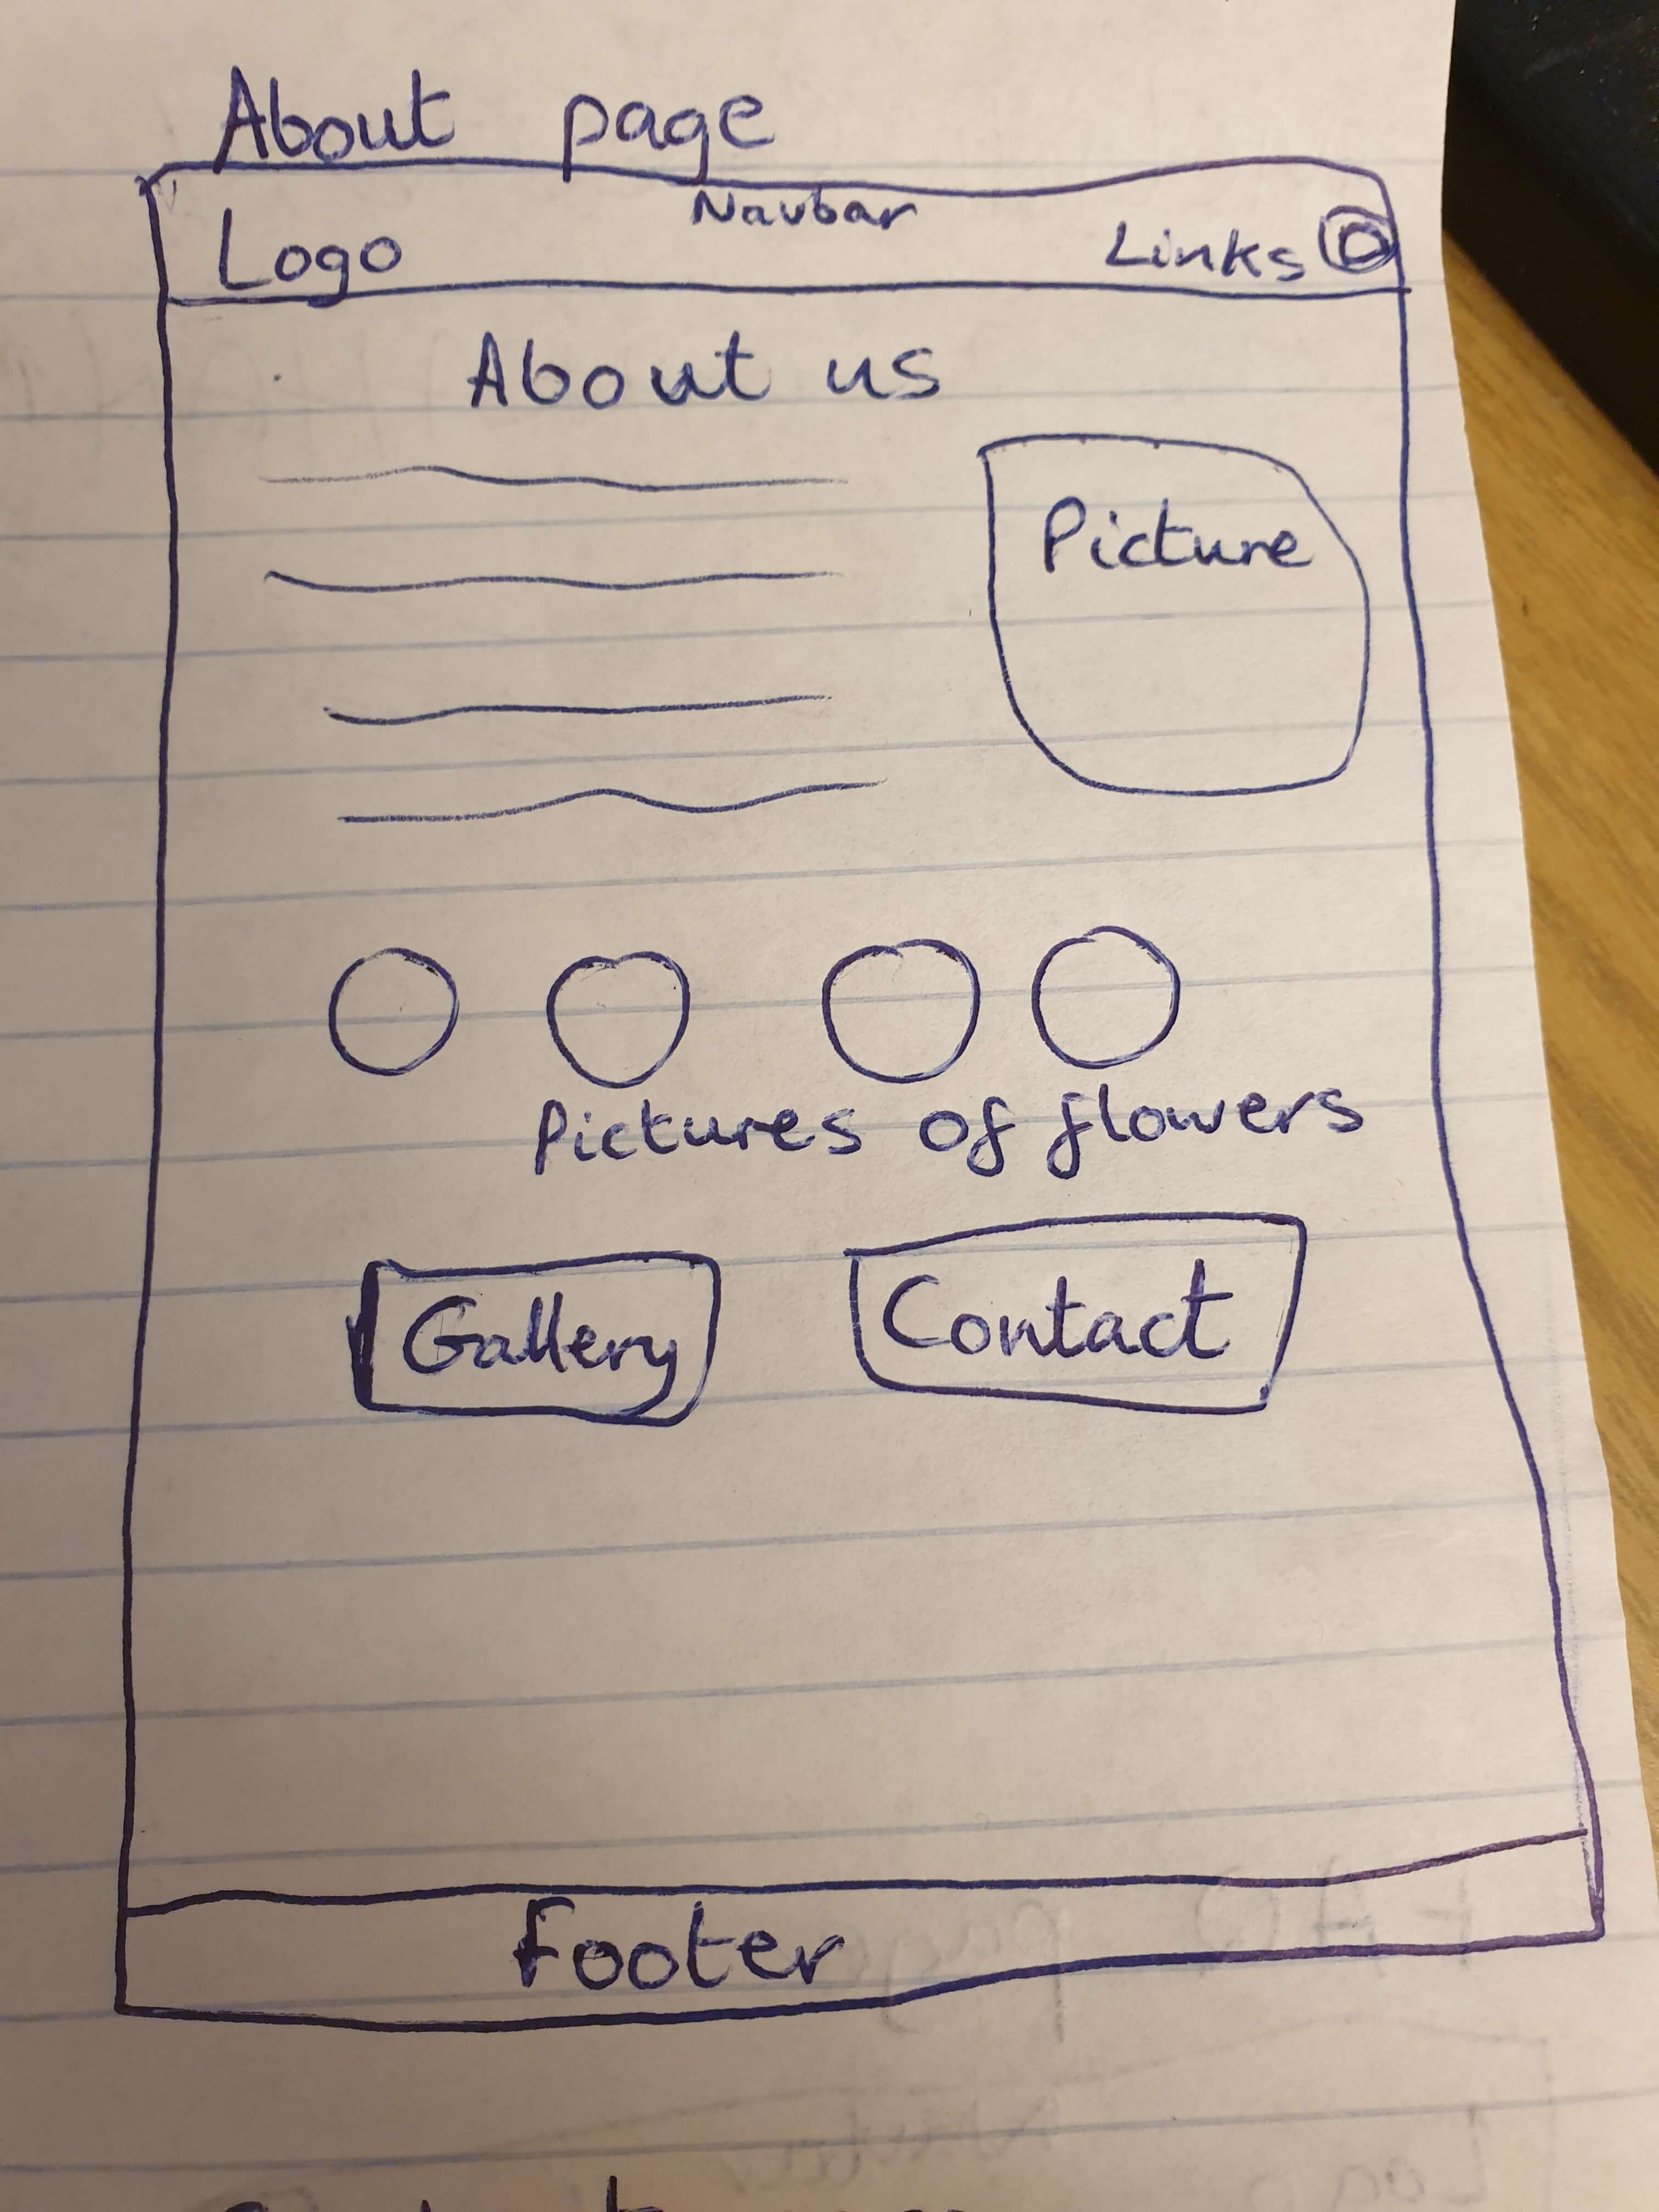 About page
Navbar
Logo Links
About us
Picture
Pictures of flowers
Gallery Contact
Footer